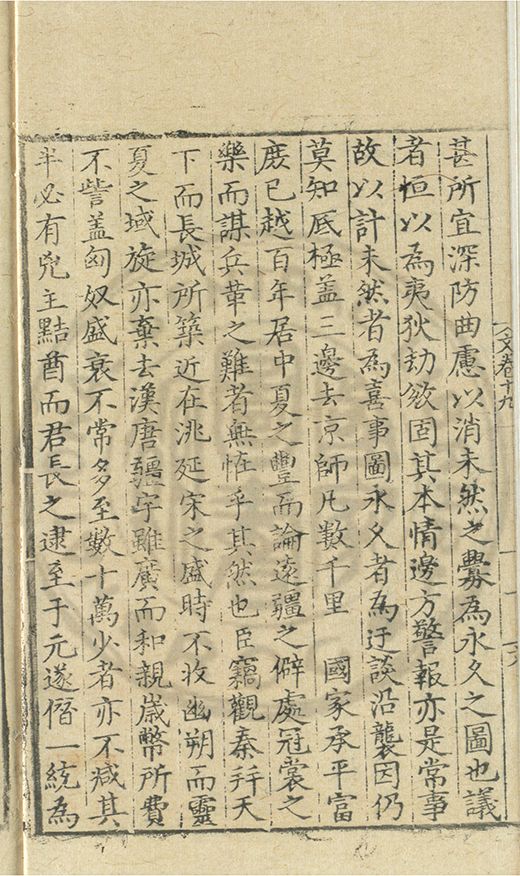 文卷十九
甚所宜深防曲慮以消未然之釁為永久之圖也議
者恒以為夷狄劫敓固其本情邊方警報亦是常事
故以計未然者為喜事圖永久者為迂談沿襲因仍
莫知底極盖三邊去京師凡数千里　國家承平富
庻已越百年居中夏之豐而論遠疆之僻處冠裳之
樂而謀兵革之難者無恠乎其然也臣竊觀秦幷天
下而長城所築近在洮延宋之盛時不收幽朔而靈
夏之域旋亦棄去漢唐疆宇雖廣而和親嵗幣所費
不訾盖匈奴盛衰不常多至數十萬少者亦不减其
半必有兇主黠酋而君長之逮至于元遂僭一統為